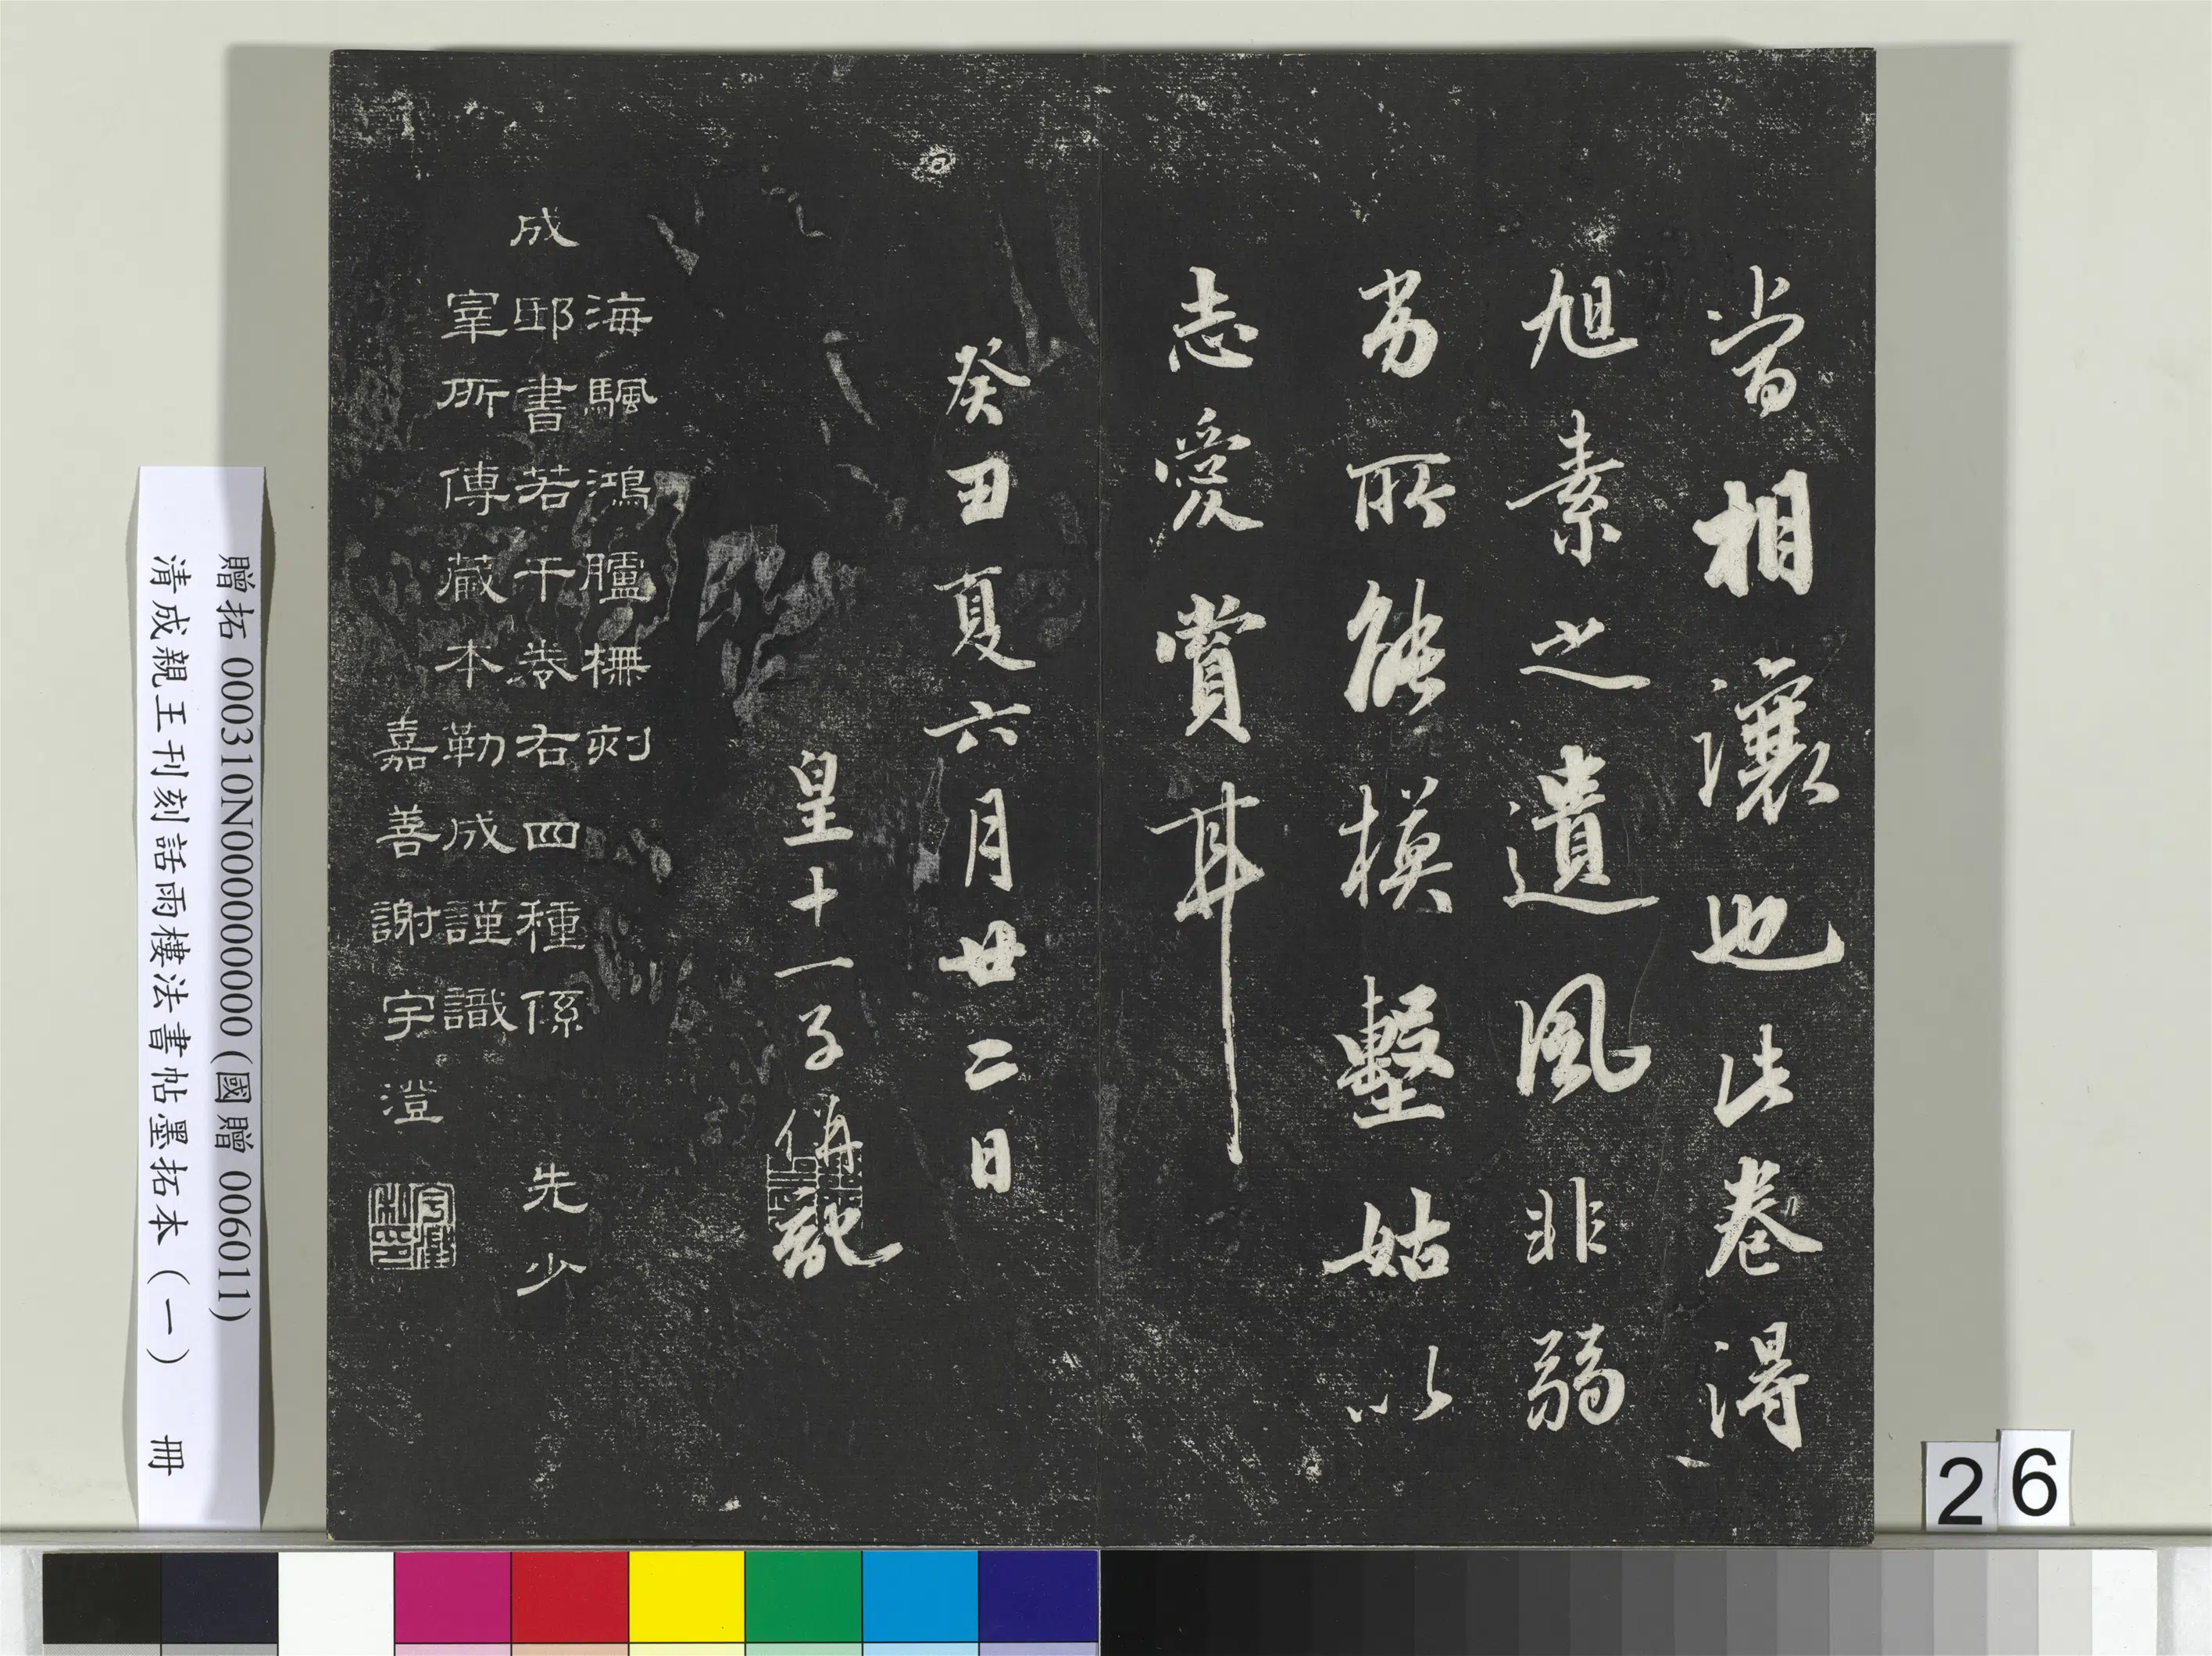 嘗相瀼也此卷得
旭素之遺風非弱
翁所能模墼姑以
志愛賞耳
癸丑夏六月廿二日
皇十一子偁記
海颿鴻臚橅刻
成邸書若干卷右四種係 先少
宰所傳藏本勒成謹識
嘉善謝宇澄
贈拓 000310N000000000 (國贈 006011)
清成親王刊刻話雨樓法書帖墨拓本（一） 冊
26